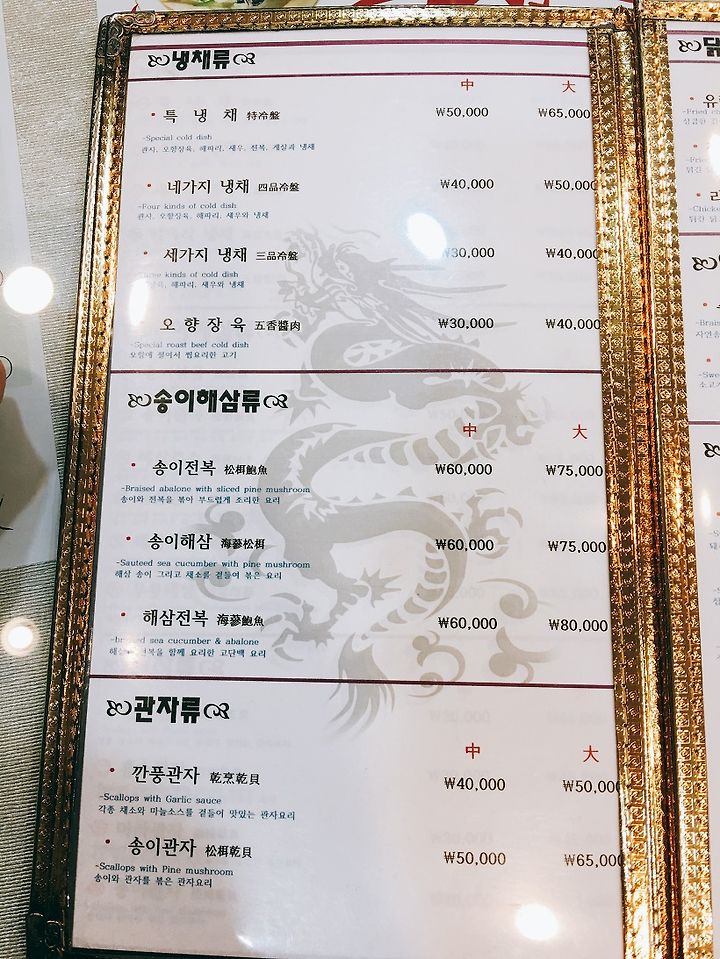 냉채류
中 大
특 냉 채 特冷盤 ₩50,000 ₩65,000
-Special cold dish
관자, 오향장육, 해파리, 새우, 전복, 게살과 냉채
네가지 냉채 四品冷盤 ₩40,000 ₩50,000
-Four kinds of cold dish
관자, 오향장육, 해파리, 새우와 냉채
세가지 냉채 三品冷盤 ₩30,000 ₩40,000
kinds of cold dish
해파리, 새우와 냉채
오 향 장 육 五香醬肉 ₩30,000 ₩40,000
-Special roast beef cold dish
오향에 절여서 찜요리한 고기
송이해삼류
中 大
송이전복 松栮鮑魚 ₩60,000 ₩75,000
-Braised abalone with sliced pine mushroom
송이와 전복을 볶아 부드럽게 조리한 요리
송이해삼 海蔘松栮 ₩60,000 ₩75,000
-Sauteed sea cucumber with pine mushroom
해삼 송이 그리고 채소를 곁들여 볶은 요리
해삼전복 海蔘鮑魚 ₩60,000 ₩80,000
sea cucumber & abalone
함께 요리한 고단백 요리
관자류
中 大
깐풍관자 乾烹乾貝 ₩40,000 ₩50,000
-Scallops with Garlic sauce
각종 채소와 마늘소스를 곁들여 맛있는 관자요리
송이관자 松栮乾貝 ₩50,000 ₩65,000
-Scallops with Pine mushroom
송이와 관자를 볶은 관자요리